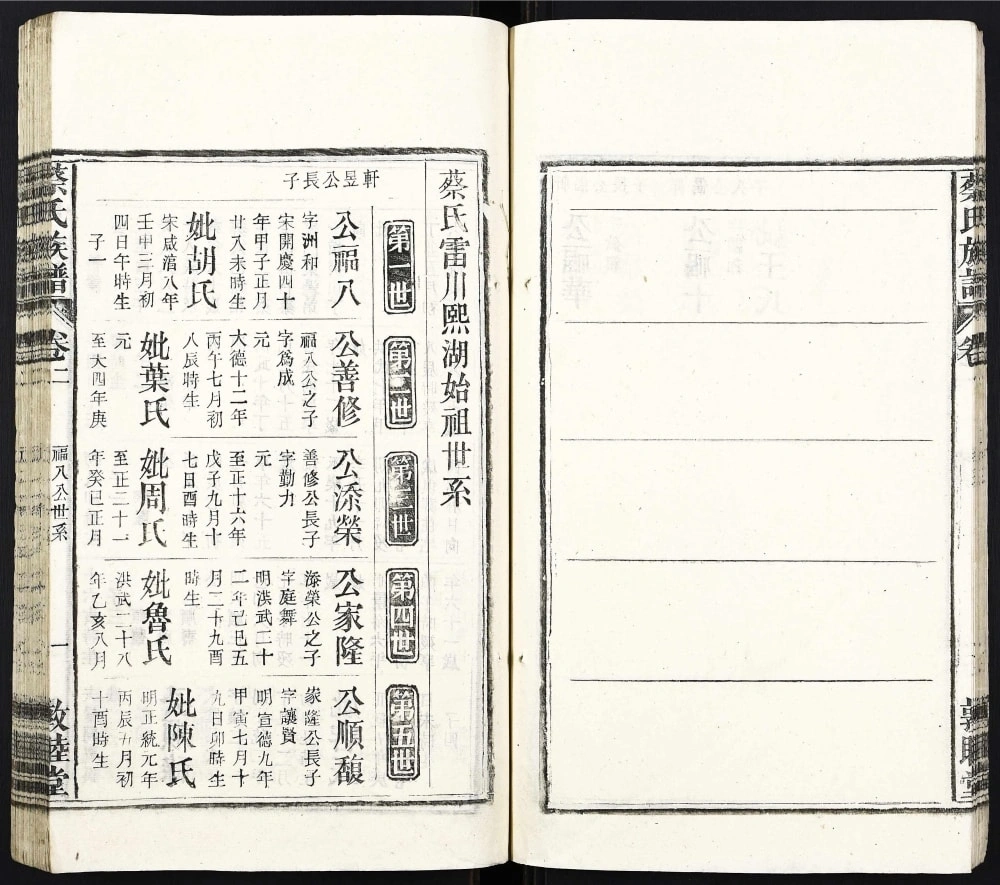 蔡氏雷川熙湖始祖世系
第一世
軒昱公長子
公福八
字洲和
宋開慶四十
年甲子正月
廿八未時生
妣胡氏
宋咸淯八年
壬申三月初
四日午時生
子一
第二世
公善修
福八公之子
字爲成
元
大德十二年
丙午七月初
八辰時生
妣葉氏
元
至大四年庚
第三世
公添榮
善修公長子
字勤力
元
至正十六年
戊子九月十
七日酉時生
妣周氏
至正二十一
年癸巳正月
第四世
公家隆
添榮公之子
字庭舞
明洪武二十
二年己巳五
月二十九酉
時生
妣魯氏
洪武二十八
年乙亥八月
第五世
公順馥
家隆公長子
字讓賢
明宣德九年
甲寅七月十
九日卯時生
妣陳氏
明正統元年
丙辰五月初
十酉時生
蔡氏族譜 卷二
福八公世系
一
敦睦堂
蔡氏族譜 卷